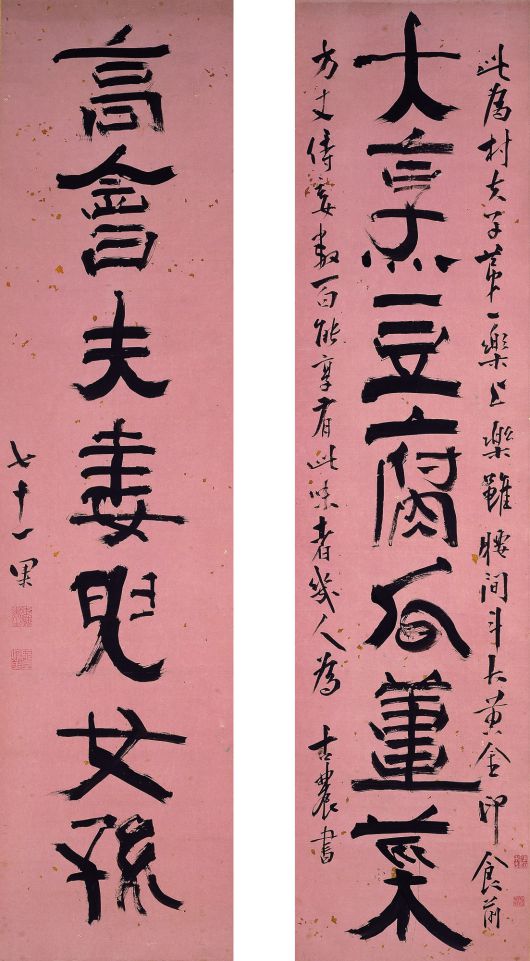 此為村夫子第一樂上樂雖腰間斗大黃金印食前
大烹豆腐瓜薑菜
方丈侍妾數百能享有此味者幾人為 古農書
高會夫妻兒女孫
七十一果